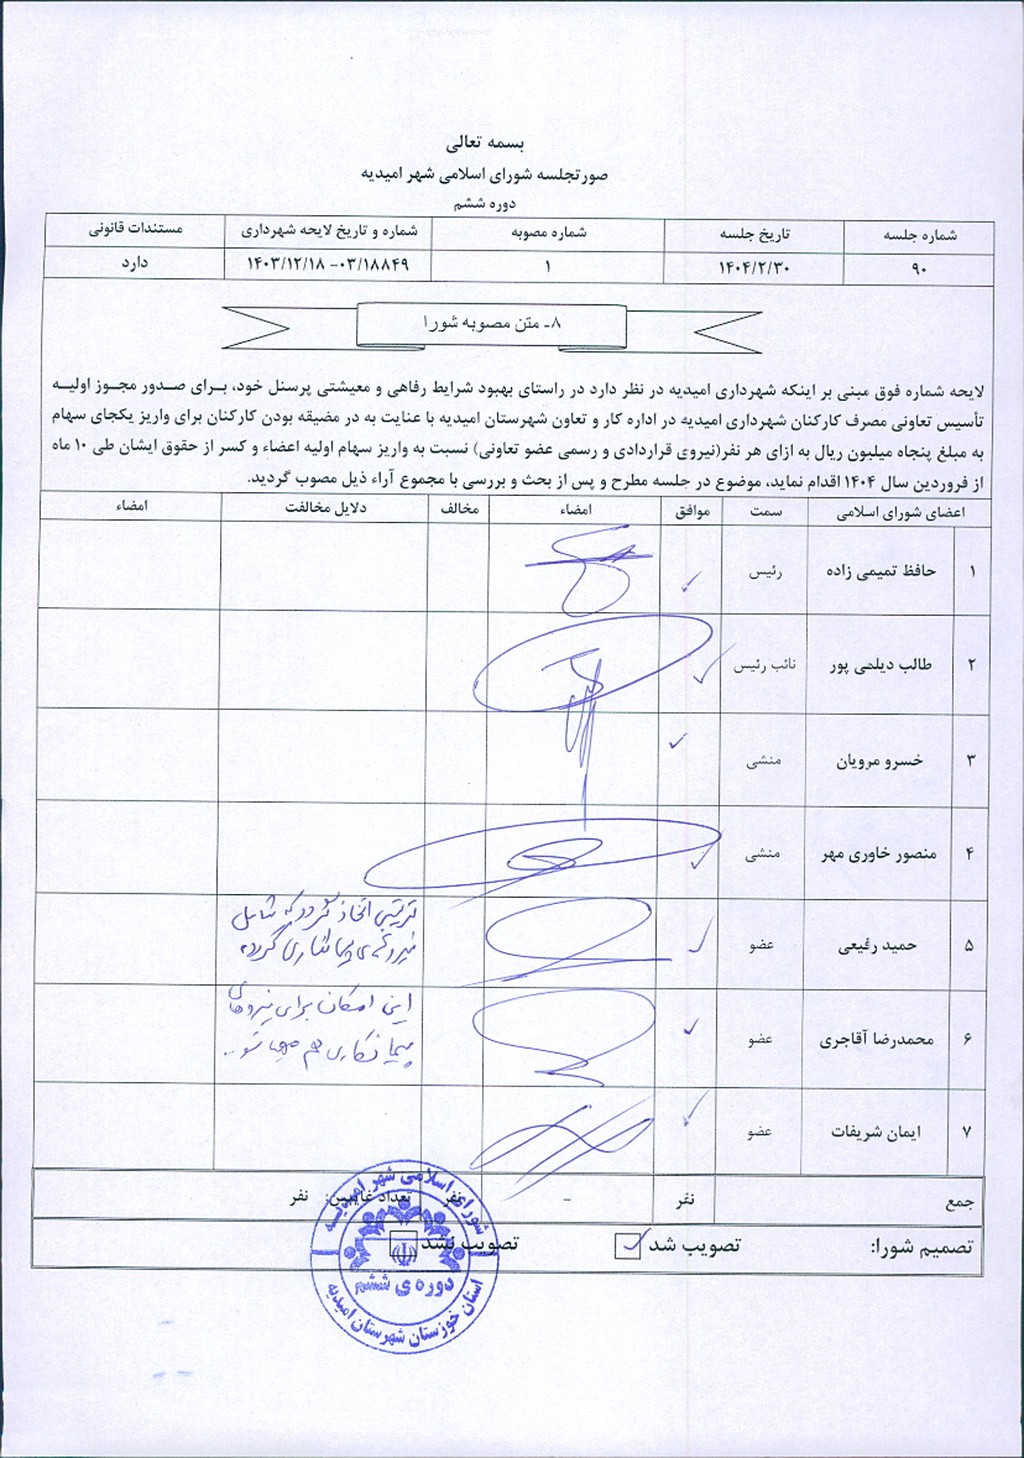 بسمه تعالی
صورتجلسه شورای اسلامی شهر امیدیه
دوره ششم
شماره جلسه تاریخ جلسه شماره مصوبه شماره و تاریخ لایحه شهرداری مستندات قانونی
۹۰ ۱۴۰۴/۲/۳۰ ۱ ۰۳/۱۸۸۴۹- ۱۴۰۳/۱۲/۱۸ دارد
۸- متن مصوبه شورا
لایحه شماره فوق مبنی بر اینکه شهرداری امیدیه در نظر دارد در راستای بهبود شرایط رفاهی و معیشتی پرسنل خود، برای صدور مجوز اولیه
تأسیس تعاونی مصرف کارکنان شهرداری امیدیه در اداره کار و تعاون شهرستان امیدیه با عنایت به در مضیقه بودن کارکنان برای واریز یکجای سهام
به مبلغ پنجاه میلیون ریال به ازای هر نفر(نیروی قراردادی و رسمی عضو تعاونی) نسبت به واریز سهام اولیه اعضاء و کسر از حقوق ایشان طی ۱۰ ماه
از فروردین سال ۱۴۰۴ اقدام نماید، موضوع در جلسه مطرح و پس از بحث و بررسی با مجموع آراء ذیل مصوب گردید.
اعضای شورای اسلامی سمت موافق امضاء مخالف دلایل مخالفت امضاء
۱ حافظ تمیمی زاده رئیس
۲ طالب دیلمی پور نائب رئیس
۳ خسرو مرویان منشی
۴ منصور خاوری مهر منشی
۵ حمید رفیعی عضو
ترتیبی اتخاذ گردد که شامل
نیروهای پیمانکاری گردد.
۶ محمدرضا آقاجری عضو
این امکان برای نیروهای
پیمانکاری هم
۷ ایمان شریفات عضو
جمع نفر - نفر تعداد غایبین: نفر
تصمیم شورا: تصویب شد تصویب نشد
شورای اسلامی شهر امیدیه
دوره ی ششم
استان خوزستان شهرستان امیدیه